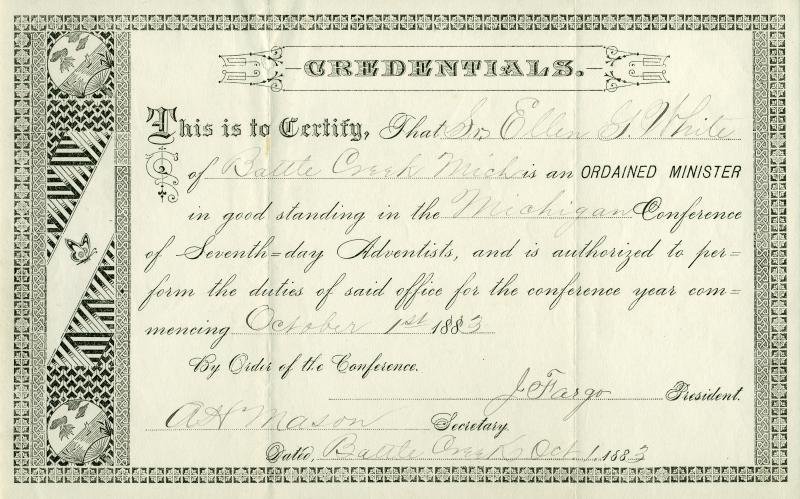 CREDENTIALS.
This is to Certify, That Sr. Ellen G. White
of Battle Creek Mich is an ORDAINED MINISTER
in good standing in the Michigan Conference
of Seventh=day Adventists, and is authorized to per=
form the duties of said office for the conference year com=
mencing October 1st 1883
By Order of the Conference.
J Fargo President.
A H Mason Secretary.
Dated, Battle Creek, Oct 1, 1883